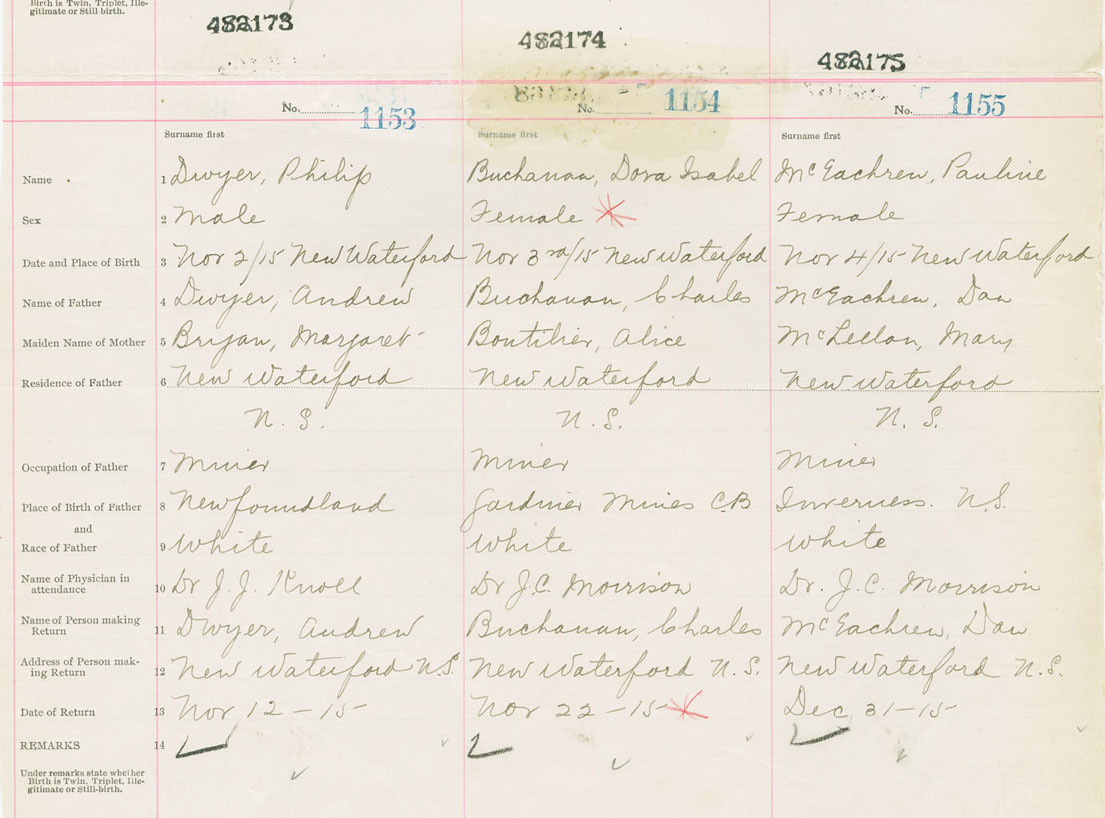 Birth is Twin, Triplet, Ille-
gitimate or Still-birth.
482173 482174 482175
No. 1153 No. 1154 No. 1155
Surname first Surname first Surname first
Name 1 Dwyer, Philip Buchanan, Dora Isabel McEachren, Pauline
Sex 2 Male Female Female
Date and Place of Birth 3 Nov 2/15 New Waterford Nov 3rd/15 New Waterford Nov 4/15 New Waterford
Name of Father 4 Dwyer, Andrew Buchanan, Charles McEachren, Dan
Maiden Name of Mother 5 Bryan, Margaret Boutilier, Alice McLellan, Mary
Residence of Father 6 New Waterford New Waterford New Waterford
N. S. N. S. N. S.
Occupation of Father 7 Miner Miner Miner
Place of Birth of Father 8 Newfoundland Gardiner Mines C.B Inverness. N.S.
and
Race of Father 9 White White White
Name of Physician in
attendance 10 Dr J. J. Knoll Dr J.C. Morrison Dr. J.C. Morrison
Name of Person making
Return 11 Dwyer, Andrew Buchanan, Charles McEachren, Dan
Address of Person mak-
ing Return 12 New Waterford N.S. New Waterford N.S. New Waterford N.S.
Date of Return 13 Nov 12-15 Nov 22-15 Dec 31-15
REMARKS 14
Under remarks state whether
Birth is Twin, Triplet, Ille-
gitimate or Still-birth.